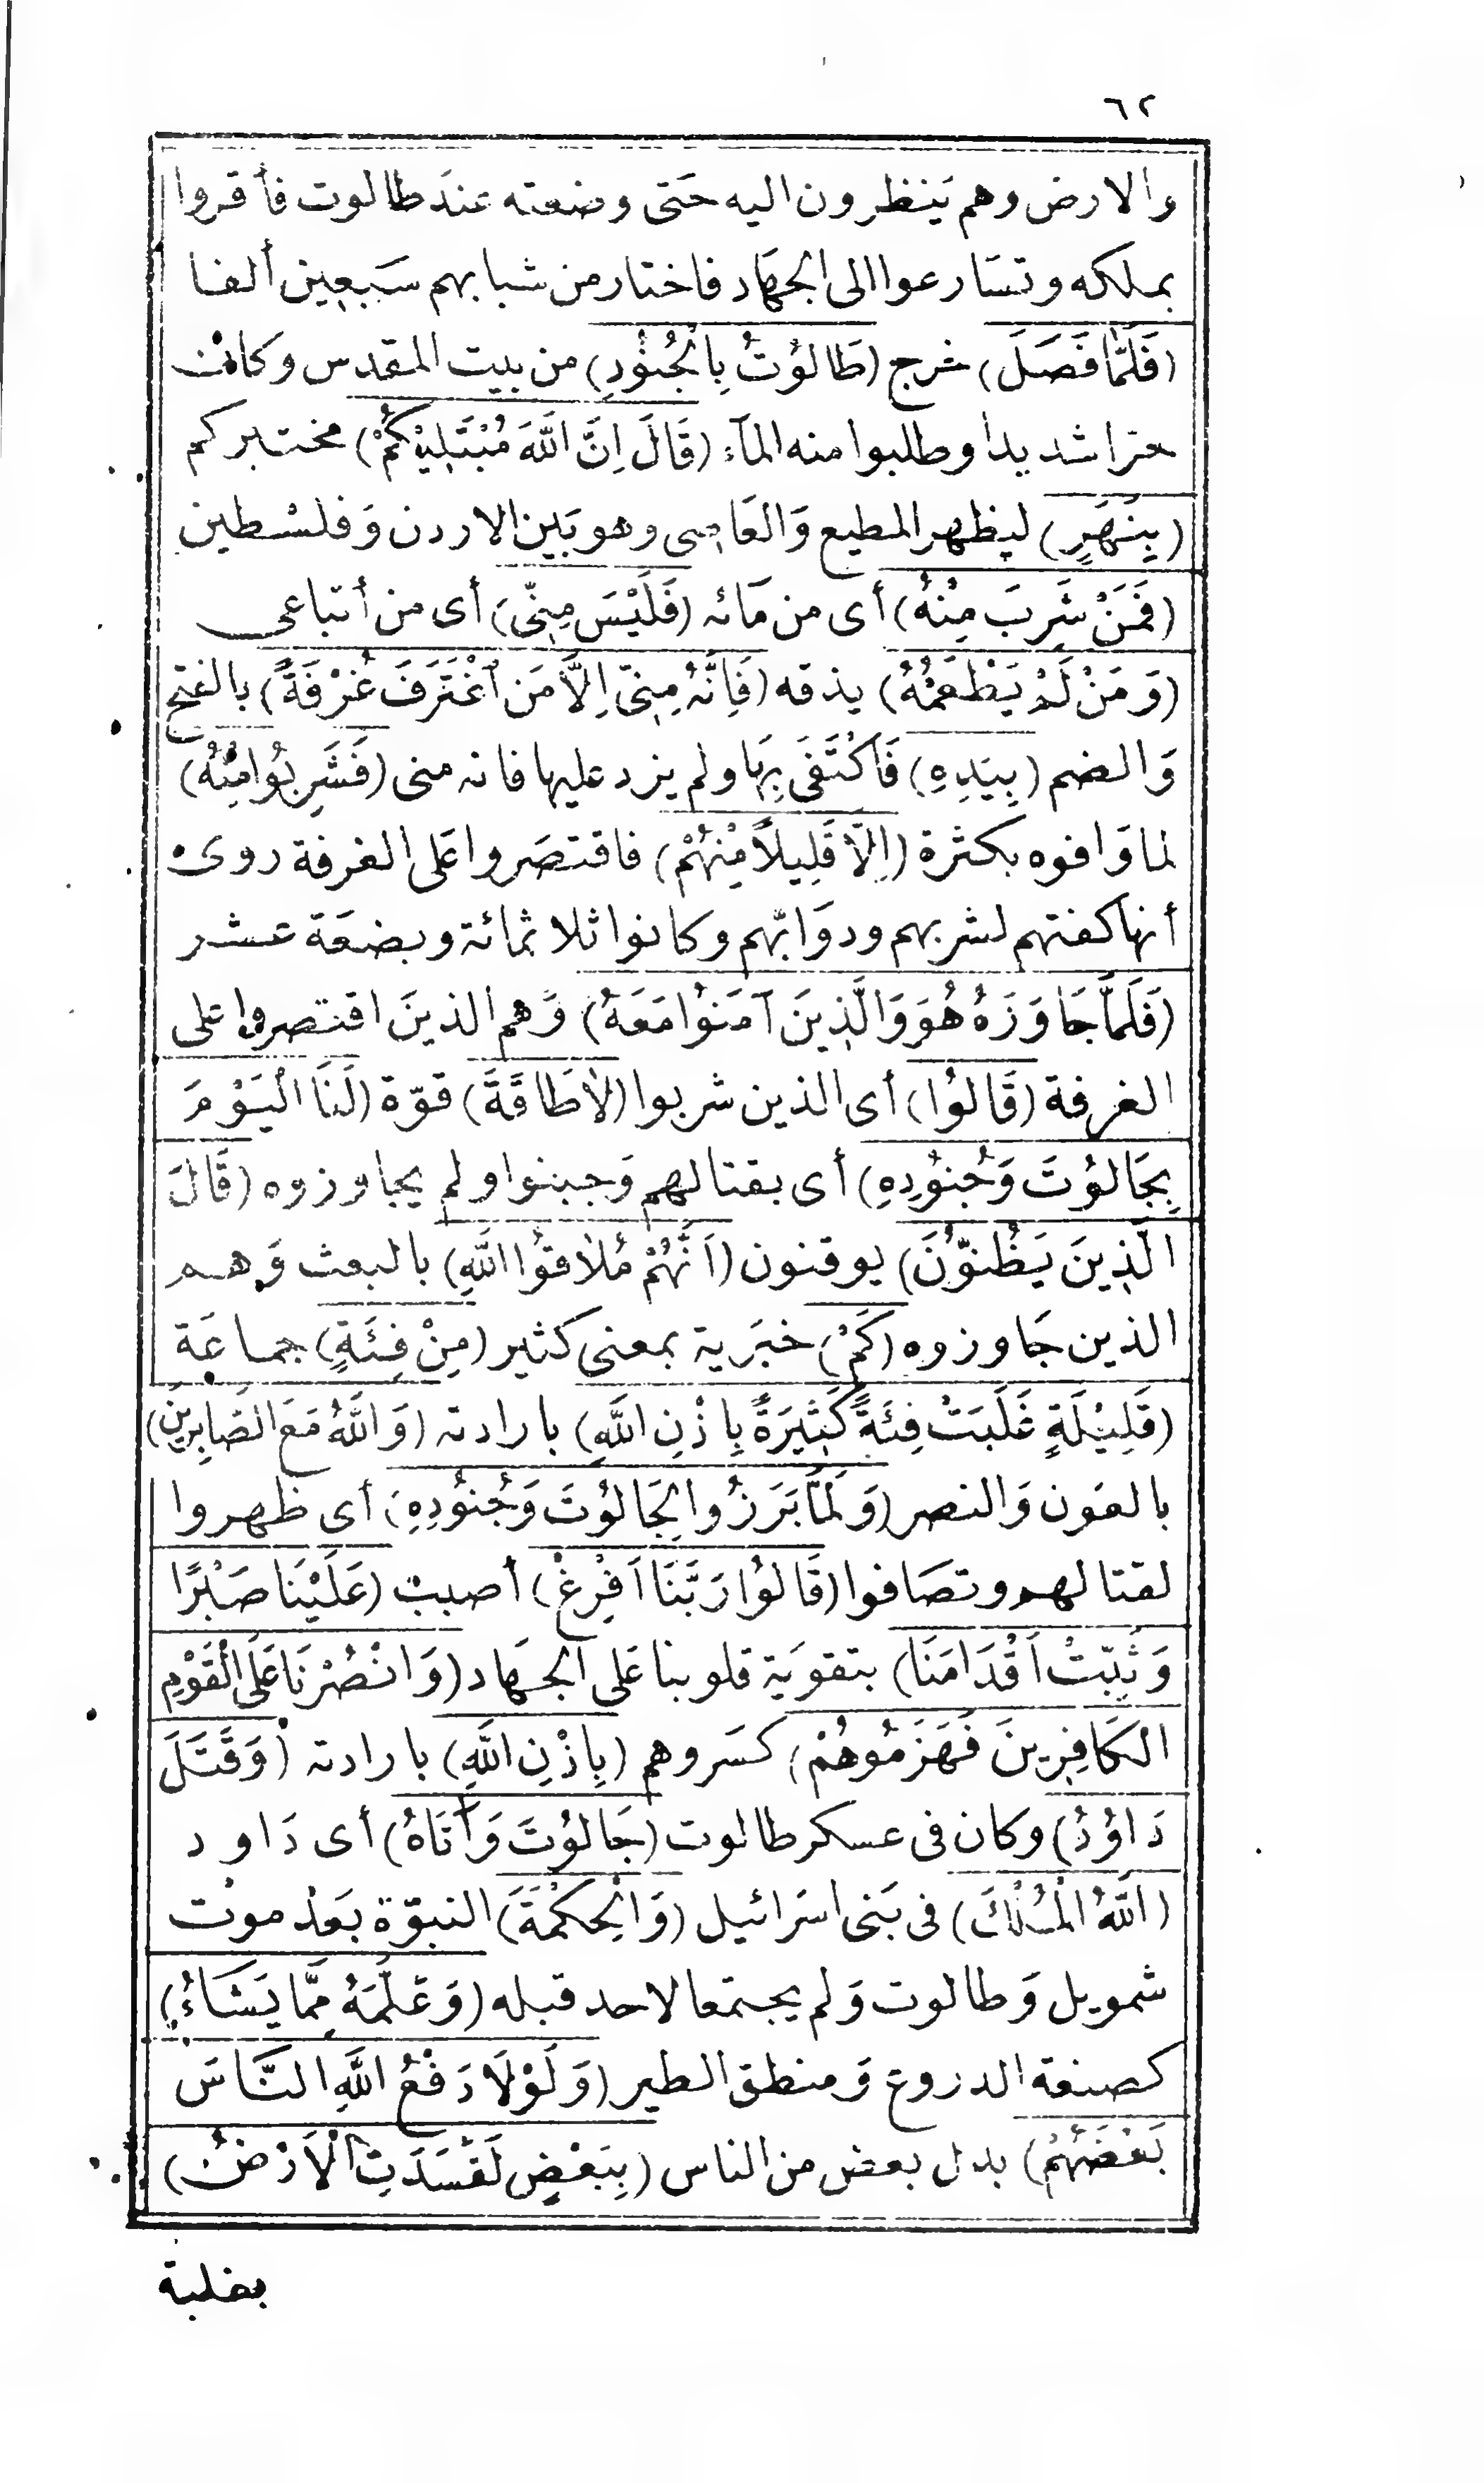 ٦٢
والارض وهم يَنظرون اليه حَتى وضعته عندَ طالوت فأقروا
بملكه وتسَارعوا الى الجهَاد فاختار من شبابهم سَبعين ألفا
(فَلَمَّا فَصَلَ) خرج (طَالُوْتُ بِالْجُنُوْدِ) من بيت المقدس وَكانت
حرا شديدا وطلبوا منه المآء (قَالَ اِنَّ اللّٰهَ مُبْتَلِيْكُمْ) مختبركم
(بِنَهَرٍ) ليظهر المطيع وَالعَاصى وهو بَين الاردن وَفلسْطين
(فَمَنْ شَرِبَ مِنْهُ) أى من مَائه (فَلَيْسَ مِنِّى) أى من أتباعى
(وَمَنْ لَمْ يَطْعَمْهُ) يذقه (فَاِنَّهُ مِنِّى اِلَّا مَن ٱغْتَرَفَ غُرْفَةً) بالفتح
وَالضم (بِيَدِهِ) فَاكْتَفَى بِهَا ولم يزد عليها فانه منى (فَشَرِبُوا مِنْهُ)
لما وَافوه بكثرة (اِلَّا قَلِيلًا مِنْهُمْ) فاقتصَروا عَلى الغرفة روى
أنها كفتهم لشربهم ودوَابّهم وكانوا ثلاثمائة وبضعَة عشر
(فَلَمَّا جَاوَزَهُ هُوَ وَالَّذِينَ آمَنُوْا مَعَهُ) وَهم الذينَ اقتصروا على
الغرفة (قَالُوْا) أى الذين شربوا (لَا طَاقَةَ) قوّة (لَنَا الْيَوْمَ
بِجَالُوْتَ وَجُنُوْدِهِ) أى بقتالهم وَجبنوا ولم يجاوزوه (قَالَ
الَّذِينَ يَظُنُّوْنَ) يوقنون (اَنَّهُمْ مُلَاقُوْا اللّٰهِ) بالبعث وَهم
الذين جَاوزوه (كَمْ) خبَرية بمعنى كثير (مِنْ فِئَةٍ) جماعَة
(قَلِيْلَةٍ غَلَبَتْ فِئَةً كَثِيْرَةً بِاِذْنِ اللّٰهِ) بارادته (وَاللّٰهُ مَعَ الصَّابِرِينَ)
بالعَون وَالنصر (وَلَمَّا بَرَزُوا لِجَالُوْتَ وَجُنُوْدِهِ) أى ظهروا
لقتالهم وتصَافوا (قَالُوْا رَبَّنَا اَفْرِغْ) أصبب (عَلَيْنَا صَبْرًا
وَثَبِّتْ اَقْدَامَنَا) بتقويَة قلوبنا عَلى الجهَاد (وَانْصُرْنَا عَلَى الْقَوْمِ
الْكَافِرِينَ فَهَزَمُوهُمْ) كسَروهم (بِاِذْنِ اللّٰهِ) بارادته (وَقَتَلَ
دَاوُدُ) وكان فى عسكر طالوت (جَالُوْتَ وَآتَاهُ) أى دَاود
(اللّٰهُ الْمُلْكَ) فى بَنى اسرَائيل (وَالْحِكْمَةَ) النبوّة بعَد موت
شمويل وَطالوت وَلم يجتمعا لاحد قبله (وَعَلَّمَهُ مِمَّا يَشَاءُ)
كصنعة الدروع وَمنطق الطير (وَلَوْلَا دَفْعُ اللّٰهِ النَّاسَ
بَعْضَهُمْ) بدل بعض من الناس (بِبَعْضٍ لَفَسَدَتِ الْاَرْضُ)
بغلبة